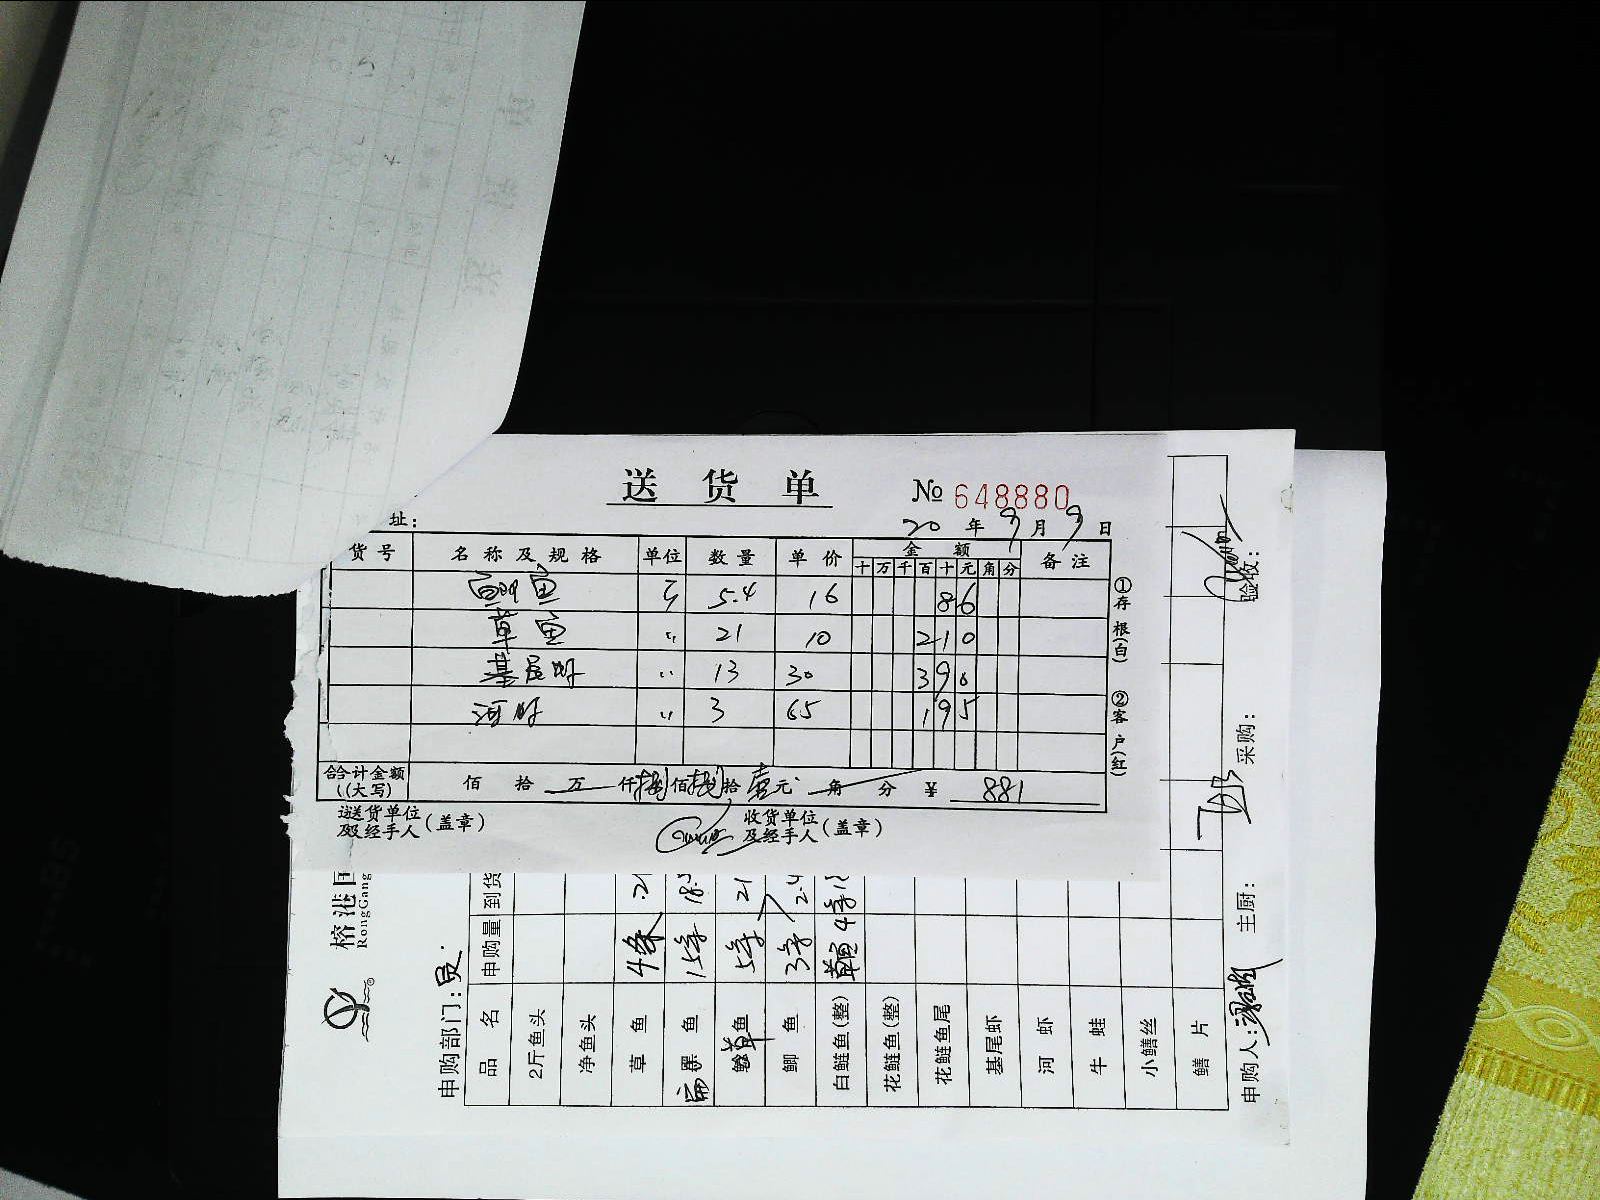 送货单 № 648880
址: 20 年 9 月 9 日
货号 名称及规格 单位 数量 单价 金额 备注
十 万 千 百 十 元 角 分
鲫鱼 斤 5.4 16 86
草鱼 〃 21 10 210
基尾虾 〃 13 30 390
河虾 〃 3 65 195
合计金额 佰 拾 万 仟 捌 佰 捌 拾 壹 元 角 分 ¥ 881
(大写)
送货单位 (盖章) 收货单位 (盖章)
及经手人 及经手人
①存根(白) ②客户(红)
榕港
RongGang
申购部门:
品名 申购量 到货
2斤鱼头
净鱼头
草鱼 4条 21
黑鱼 15条 18.5
草鱼 5条 21
鲫鱼 3条 2.4
白鲢鱼(整) 草鱼4条
花鲢鱼(整)
花鲢鱼尾
基尾虾
河虾
牛蛙
小鳝丝
鳝片
申购人: 主厨: 采购: 验收: